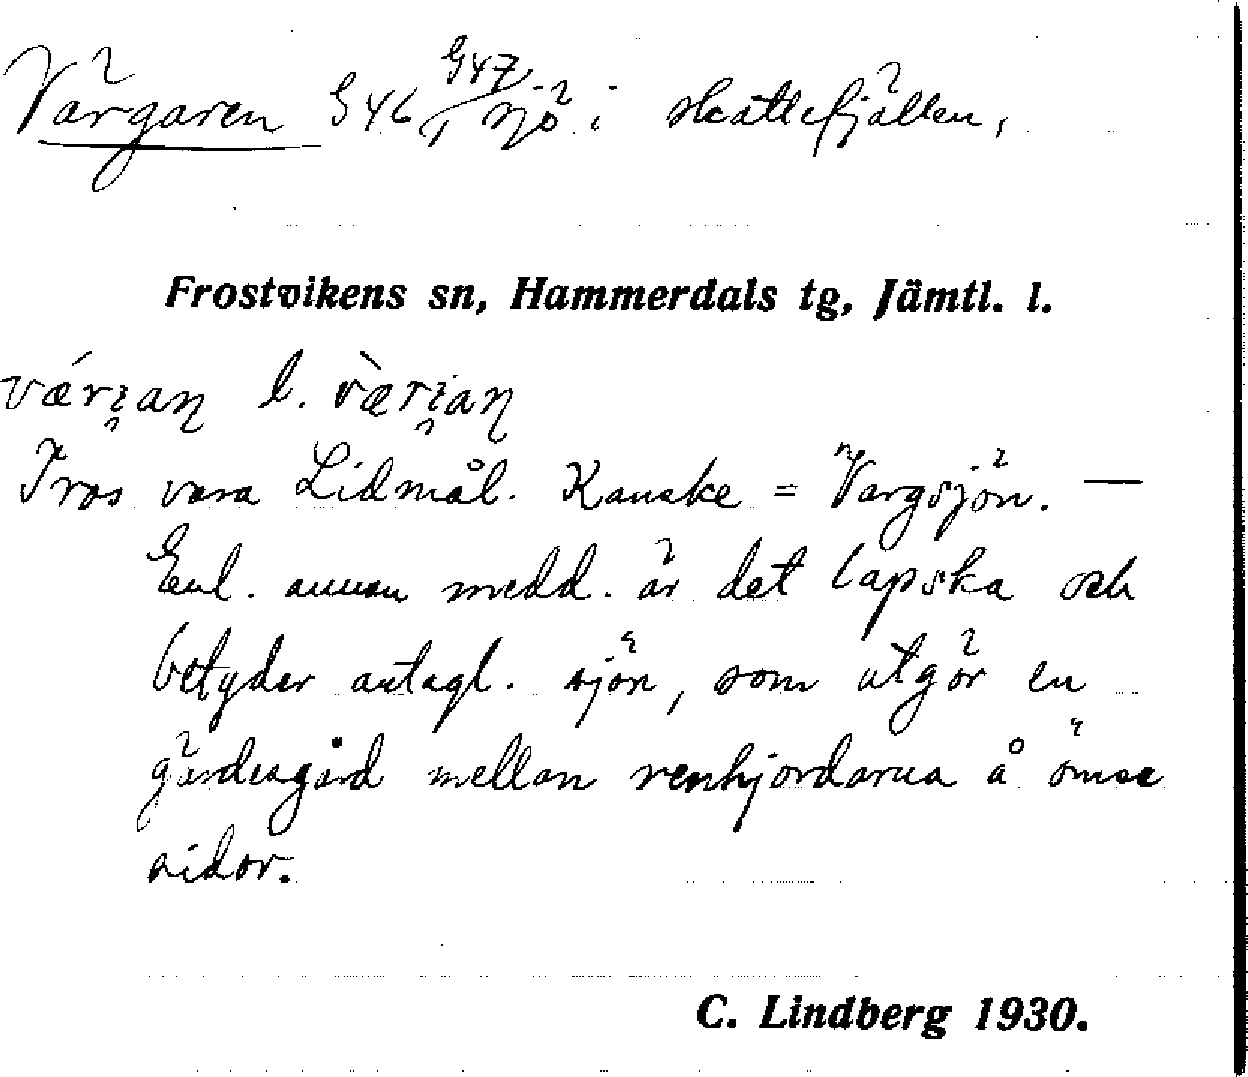 Värgaren 946, 947 sjö i skattefjällen,
Frostvikens sn, Hammerdals tg, Jämtl. l.
væ´ri̯aɳ l. væ`ri̯aɳ
Tros vara Lidmål. Kanske = Vargsjön. —
Enl. annan medd. är det lapska och
betyder antagl. sjön, som utgör en
gärdesgård mellan renhjordarna å ömse
sidor.
C. Lindberg 1930.